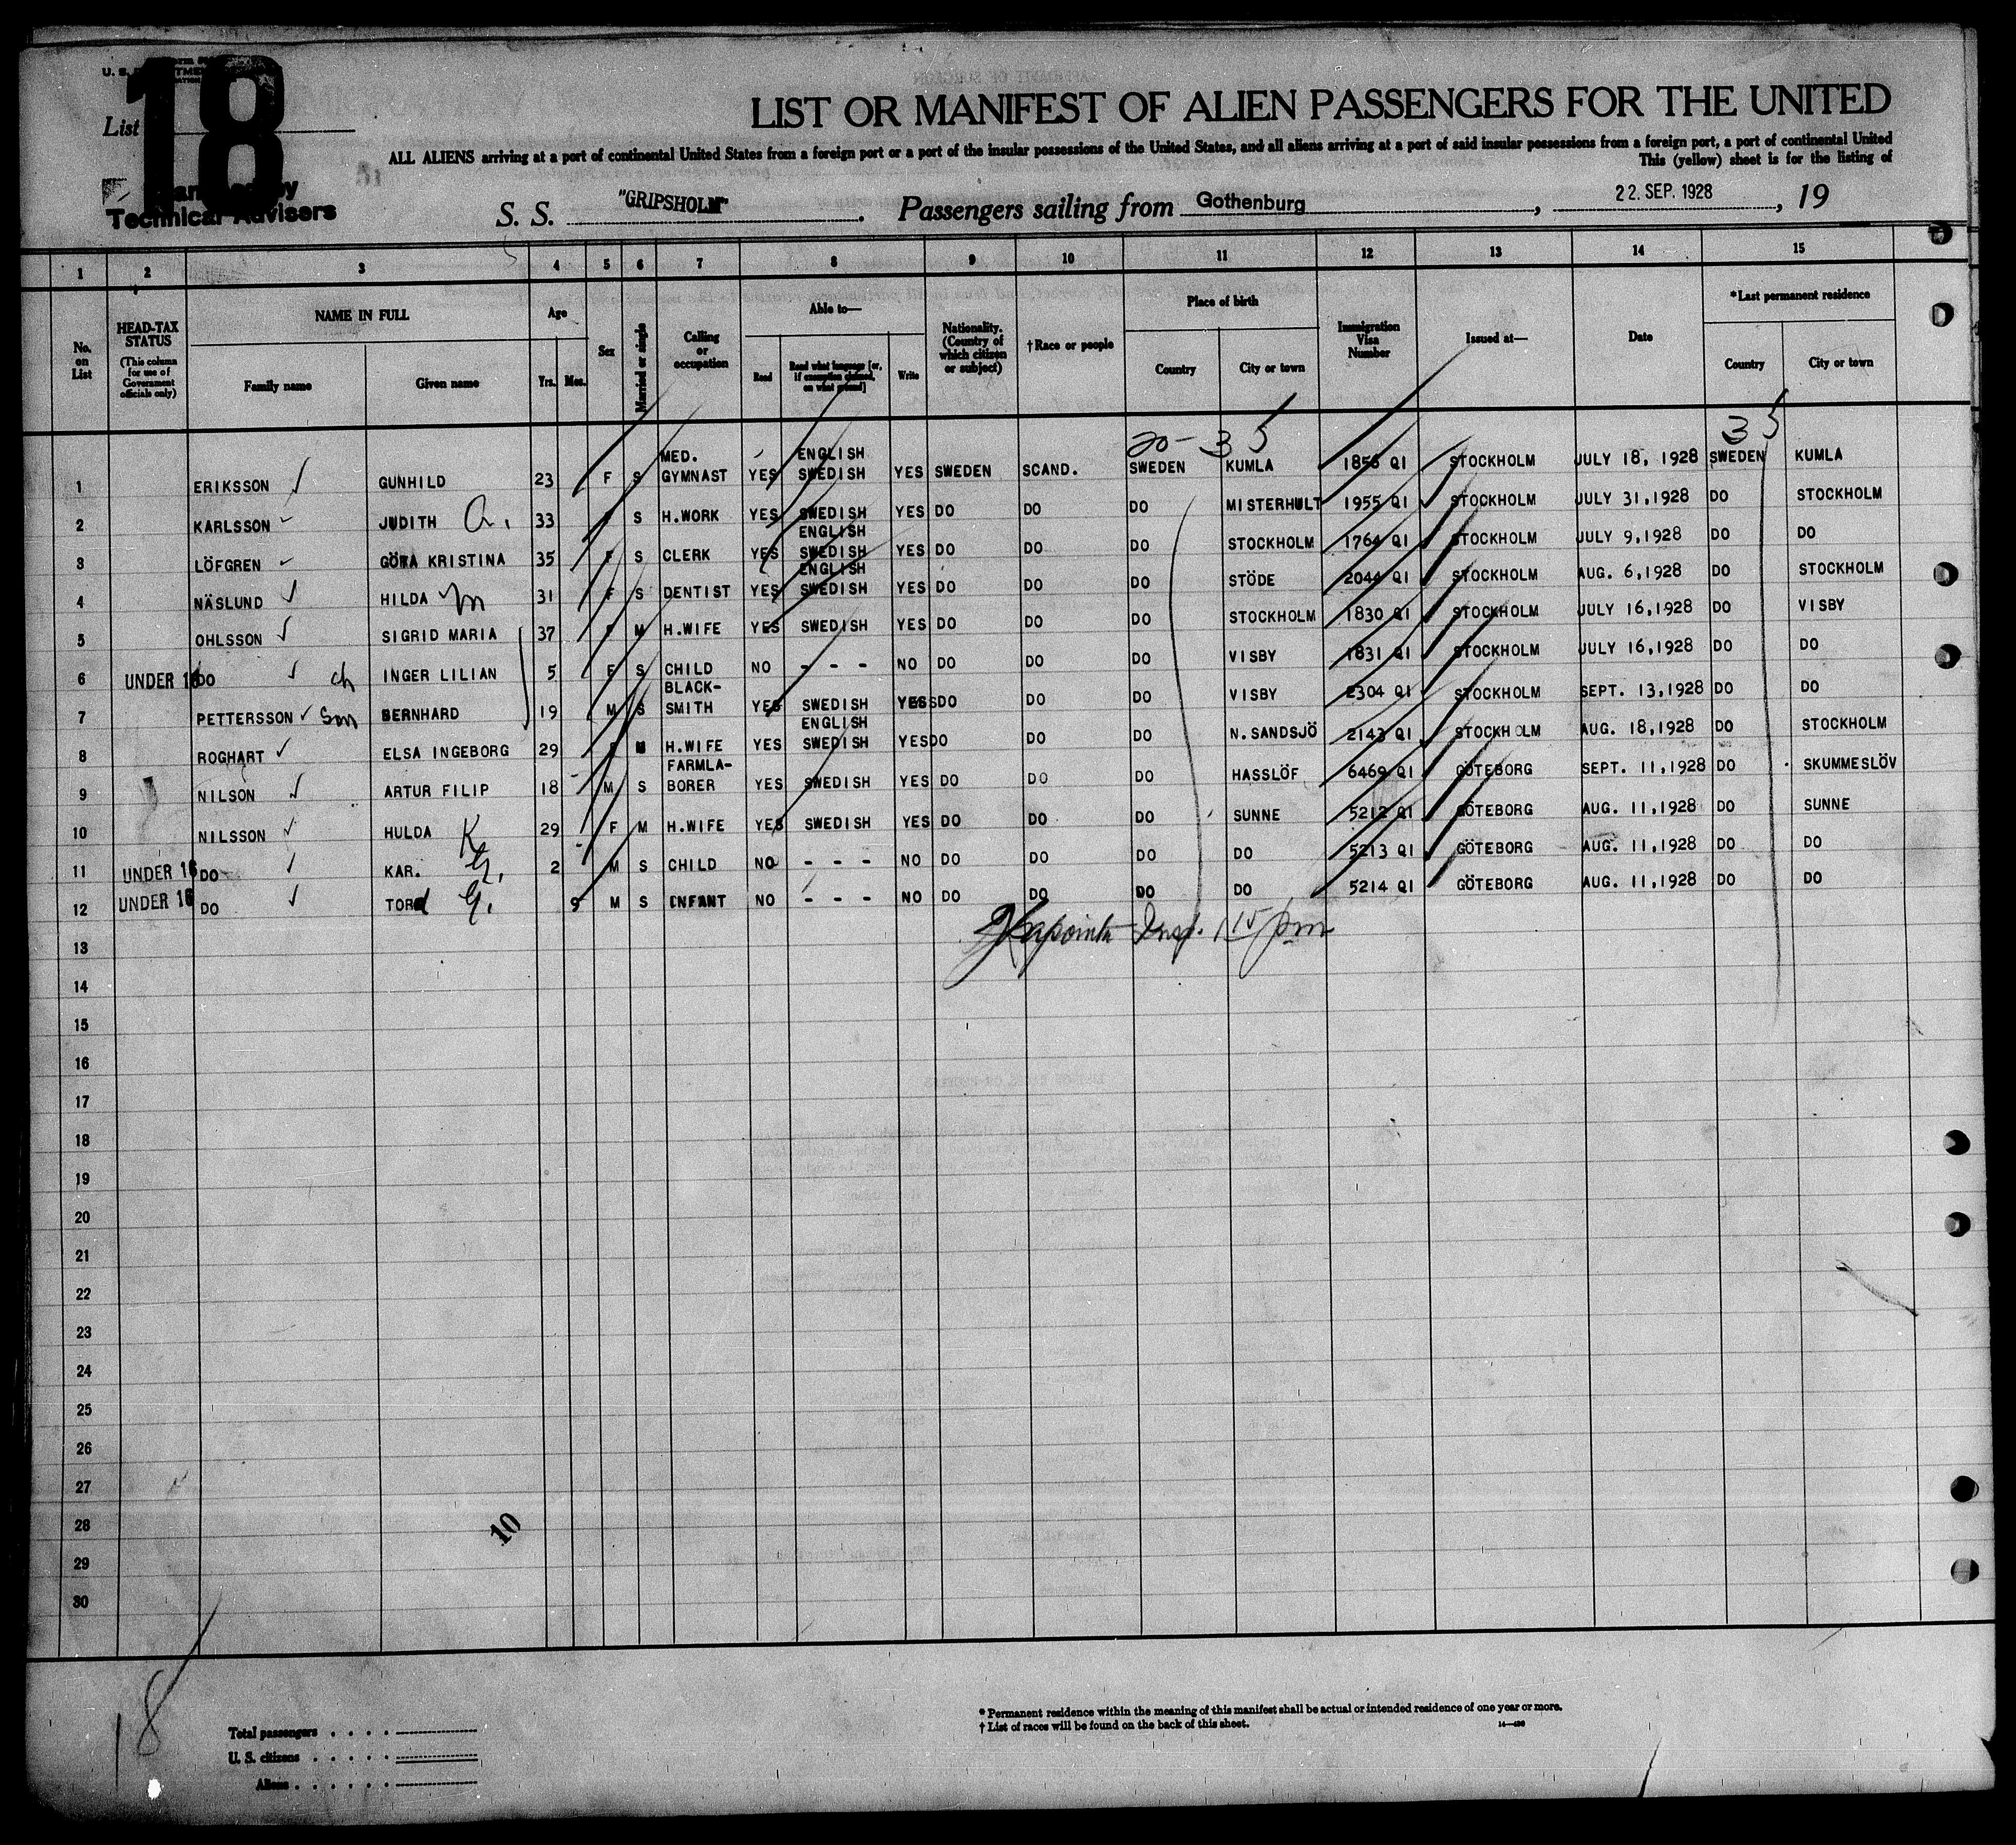 18
List
Technical Advisers
LIST OR MANIFEST OF ALIEN PASSENGERS FOR THE UNITED
ALL ALIENS arriving at a port of continental United States from a foreign port or a port of the insular possessions of the United States, and all aliens arriving at a port of said insular possessions from a foreign port, a port of continental United
This (yellow) sheet is for the listing of
S. S. "GRIPSHOLM". Passengers sailing from Gothenburg, 22. SEP. 1928, 19
1 2 3 4 5 6 7 8 9 10 11 12 13 14 15
No. on List
HEAD-TAX STATUS
(This column for use of Government officials only)
NAME IN FULL
Family name
Given name
Age
Yrs. Mos.
Sex
Married or single
Calling or occupation
Able to—
Read
Read what language [or, if exemption claimed, on what ground]
Write
Nationality. (Country of which citizen or subject)
†Race or people
Place of birth
Country
City or town
Immigration Visa Number
Issued at—
Date
*Last permanent residence
Country
City or town
20- 35
35
1 ERIKSSON GUNHILD 23 F S MED. GYMNAST YES ENGLISH SWEDISH YES SWEDEN SCAND. SWEDEN KUMLA 1856 QI STOCKHOLM JULY 18, 1928 SWEDEN KUMLA
2 KARLSSON JUDITH A. 33 F S H.WORK YES SWEDISH YES DO DO DO MISTERHULT 1955 QI STOCKHOLM JULY 31,1928 DO STOCKHOLM
3 LÖFGREN GÖTA KRISTINA 35 F S CLERK YES ENGLISH SWEDISH YES DO DO DO STOCKHOLM 1764 QI STOCKHOLM JULY 9,1928 DO DO
4 NÄSLUND HILDA M 31 F S DENTIST YES ENGLISH SWEDISH YES DO DO DO STÖDE 2044 QI STOCKHOLM AUG. 6,1928 DO STOCKHOLM
5 OHLSSON SIGRID MARIA 37 F M H.WIFE YES SWEDISH YES DO DO DO STOCKHOLM 1830 QI STOCKHOLM JULY 16,1928 DO VISBY
6 UNDER 16 DO ch INGER LILIAN 5 F S CHILD NO - - - NO DO DO DO VISBY 1831 QI STOCKHOLM JULY 16,1928 DO DO
7 PETTERSSON Son BERNHARD 19 M S BLACK-SMITH YES SWEDISH YES DO DO DO VISBY 2304 QI STOCKHOLM SEPT. 13,1928 DO DO
8 ROGHART ELSA INGEBORG 29 F M H.WIFE YES ENGLISH SWEDISH YES DO DO DO N.SANDSJÖ 2143 QI STOCKHOLM AUG. 18,1928 DO STOCKHOLM
9 NILSON ARTUR FILIP 18 M S FARMLA-BORER YES SWEDISH YES DO DO DO HASSLÖF 6469 QI GÖTEBORG SEPT. 11,1928 DO SKUMMESLÖV
10 NILSSON HULDA K 29 F M H.WIFE YES SWEDISH YES DO DO DO SUNNE 5212 QI GÖTEBORG AUG. 11,1928 DO SUNNE
11 UNDER 16 DO KAR. G. 2 M S CHILD NO - - - NO DO DO DO DO 5213 QI GÖTEBORG AUG. 11,1928 DO DO
12 UNDER 16 DO TORD G. 9 M S INFANT NO - - - NO DO DO DO DO 5214 QI GÖTEBORG AUG. 11,1928 DO DO
Insp. 1 15/pm
13
14
15
16
17
18
19
20
21
22
23
24
25
26
27
28
29
30
10
18
Total passengers
U. S. citizens
Aliens
* Permanent residence within the meaning of this manifest shall be actual or intended residence of one year or more.
† List of races will be found on the back of this sheet.